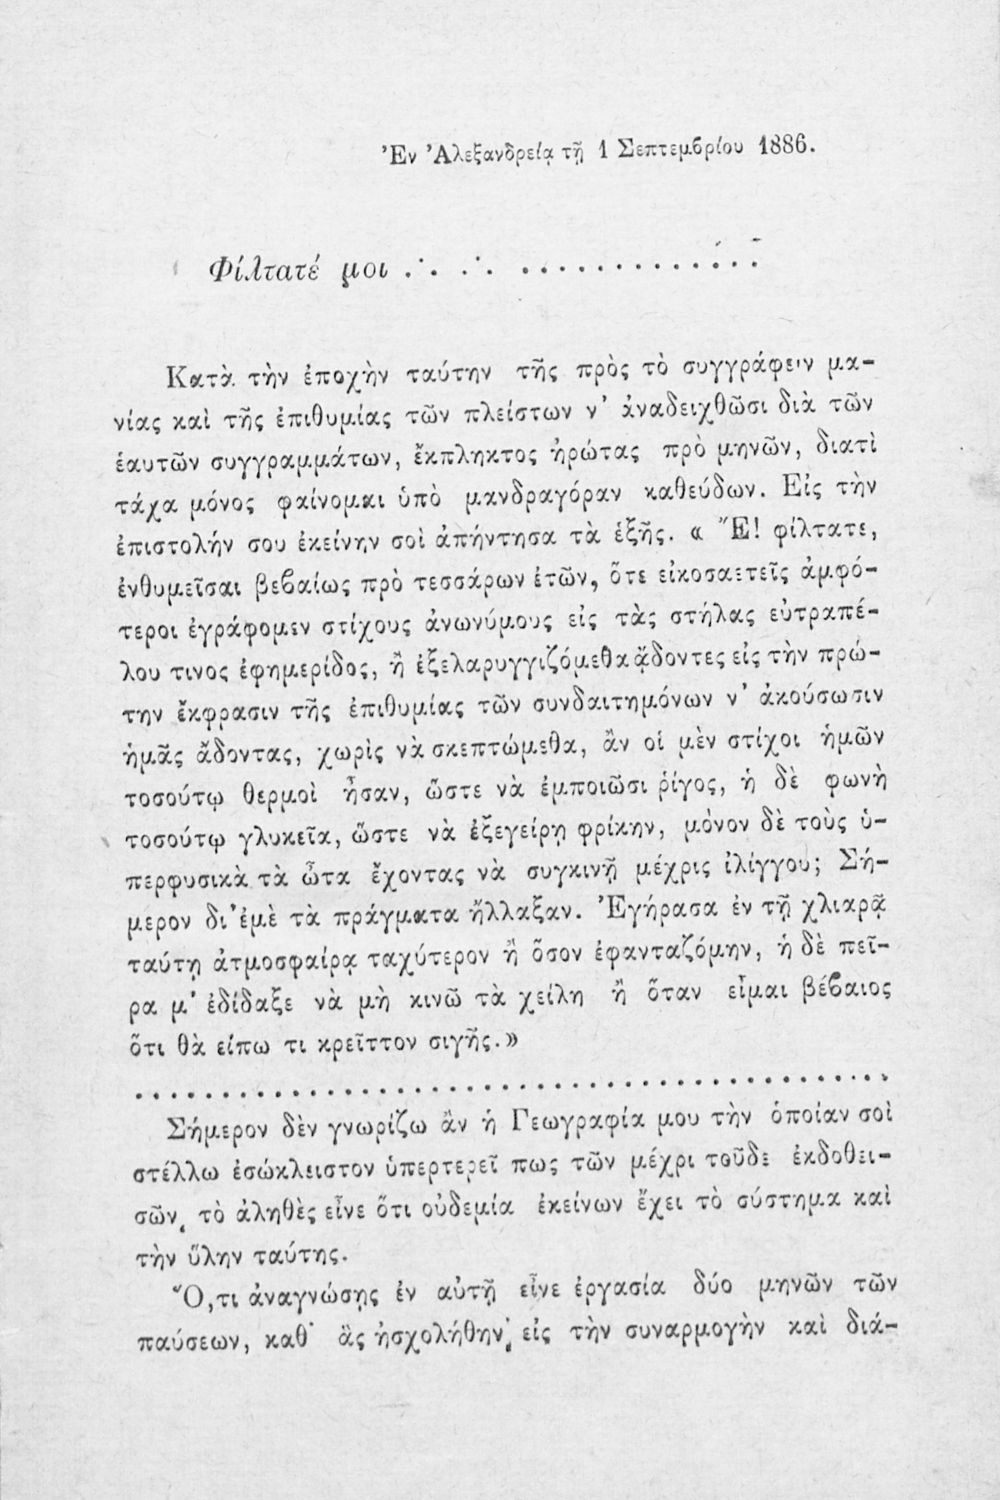 Ἐν Ἀλεξανδρείᾳ τῇ 1 Σεπτεμβρίου 1886.
Φίλτατέ μοι .·. .·. .............
Κατὰ τὴν ἐποχὴν ταύτην τῆς πρὸς τὸ συγγράφειν μα-
νίας καὶ τῆς ἐπιθυμίας τῶν πλείστων ν' ἀναδειχθῶσι διὰ τῶν
ἑαυτῶν συγγραμμάτων, ἔκπληκτος ἠρώτας πρὸ μηνῶν, διατὶ
τάχα μόνος φαίνομαι ὑπὸ μανδραγόραν καθεύδων. Εἰς τὴν
ἐπιστολήν σου ἐκείνην σοὶ ἀπήντησα τὰ ἑξῆς. « Ἔ! φίλτατε,
ἐνθυμεῖσαι βεβαίως πρὸ τεσσάρων ἐτῶν, ὅτε εἰκοσαετεῖς ἀμφό-
τεροι ἐγράφομεν στίχους ἀνωνύμους εἰς τὰς στήλας εὐτραπέ-
λου τινος ἐφημερίδος, ἢ ἐξελαρυγγιζόμεθα ᾄδοντες εἰς τὴν πρώ-
την ἔκφρασιν τῆς ἐπιθυμίας τῶν συνδαιτημόνων ν' ἀκούσωσιν
ἡμᾶς ᾄδοντας, χωρὶς νὰ σκεπτώμεθα, ἂν οἱ μὲν στίχοι ἡμῶν
τοσούτῳ θερμοὶ ἦσαν, ὥστε νὰ ἐμποιῶσι ῥίγος, ἡ δὲ φωνὴ
τοσούτῳ γλυκεῖα, ὥστε νὰ ἐξεγείρῃ φρίκην, μόνον δὲ τοὺς ὑ-
περφυσικὰ τὰ ὦτα ἔχοντας νὰ συγκινῇ μέχρις ἰλίγγου; Σή-
μερον δι' ἐμὲ τὰ πράγματα ἤλλαξαν. Ἐγήρασα ἐν τῇ χλιαρᾷ
ταύτῃ ἀτμοσφαίρᾳ ταχύτερον ἢ ὅσον ἐφανταζόμην, ἡ δὲ πεῖ-
ρα μ' ἐδίδαξε νὰ μὴ κινῶ τὰ χείλη ἢ ὅταν εἶμαι βέβαιος
ὅτι θὰ είπω τι κρεῖττον σιγῆς.»
..........................................
Σήμερον δὲν γνωρίζω ἂν ἡ Γεωγραφία μου τὴν ὁποίαν σοὶ
στέλλω ἐσώκλειστον ὑπερτερεῖ πως τῶν μέχρι τοῦδε ἐκδοθει-
σῶν, τὸ ἀληθὲς εἶνε ὅτι οὐδεμία ἐκείνων ἔχει τὸ σύστημα καὶ
τὴν ὕλην ταύτης.
Ὅ,τι ἀναγνώσῃς ἐν αὐτῇ εἶνε ἐργασία δύο μηνῶν τῶν
παύσεων, καθ' ἃς ἠσχολήθην εἰς τὴν συναρμογὴν καὶ διά-